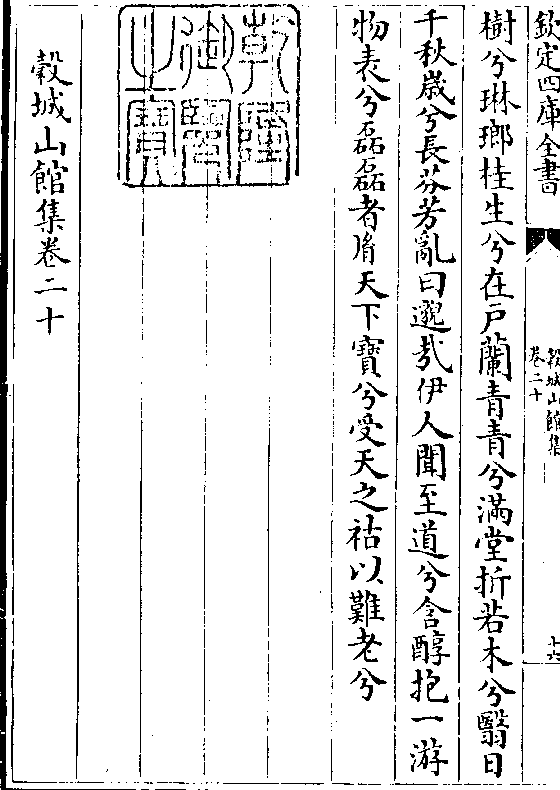 欽定四庫全書
穀城山館集
卷二十
十六
樹兮琳瑯桂生兮在戸蘭青青兮滿堂折若木兮翳日
千秋嵗兮長芬芳亂曰邈㢤伊人聞至道兮含醇抱一游
物表兮磊磊者胥天下寶兮受天之祜以難老兮
乾隆御覽之寶
穀城山館集卷二十